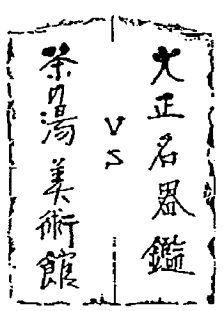 大正名器鑑
VS
茶の湯美術館